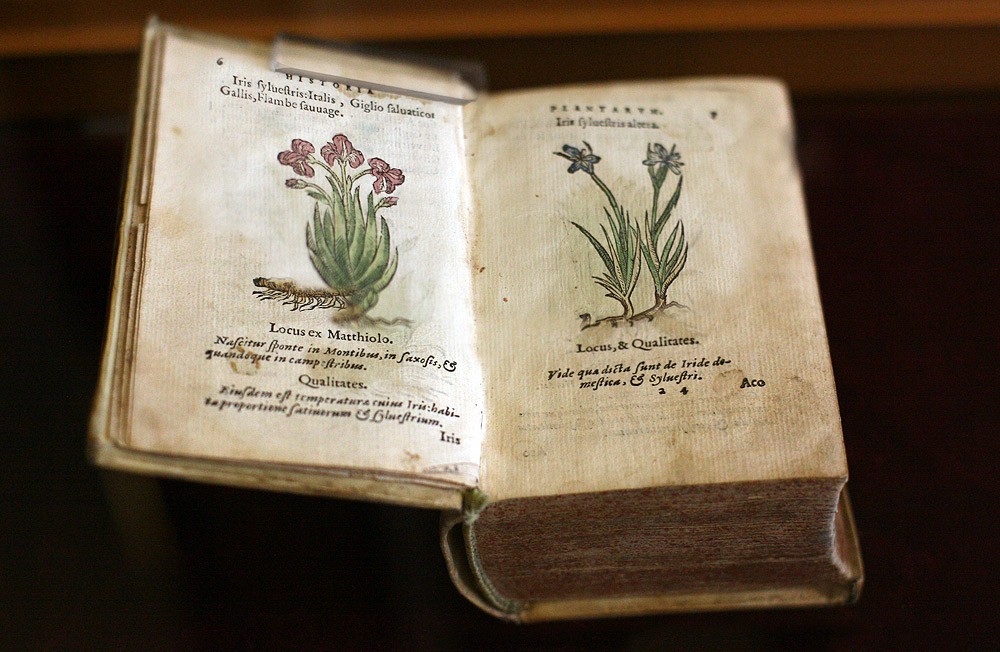 6
HISTORIA
Iris ſylueſtris: Italis, Giglio ſaluatico:
Gallis, Flambe ſauuage.
Locus ex Matthiolo.
Naſcitur ſponte in Montibus, in ſaxoſis, &
quandoque in campeſtribus.
Qualitates.
Eiuſdem eſt temperatura cuius Iris: habi-
ta proportione ſatiuorum & ſylueſtrium.
Iris
PLANTARVM.
7
Iris ſylueſtris altera.
Locus, & Qualitates.
Vide qua dicta ſunt de Iride do-
meſtica, & Sylueſtri.
a 4
Aco